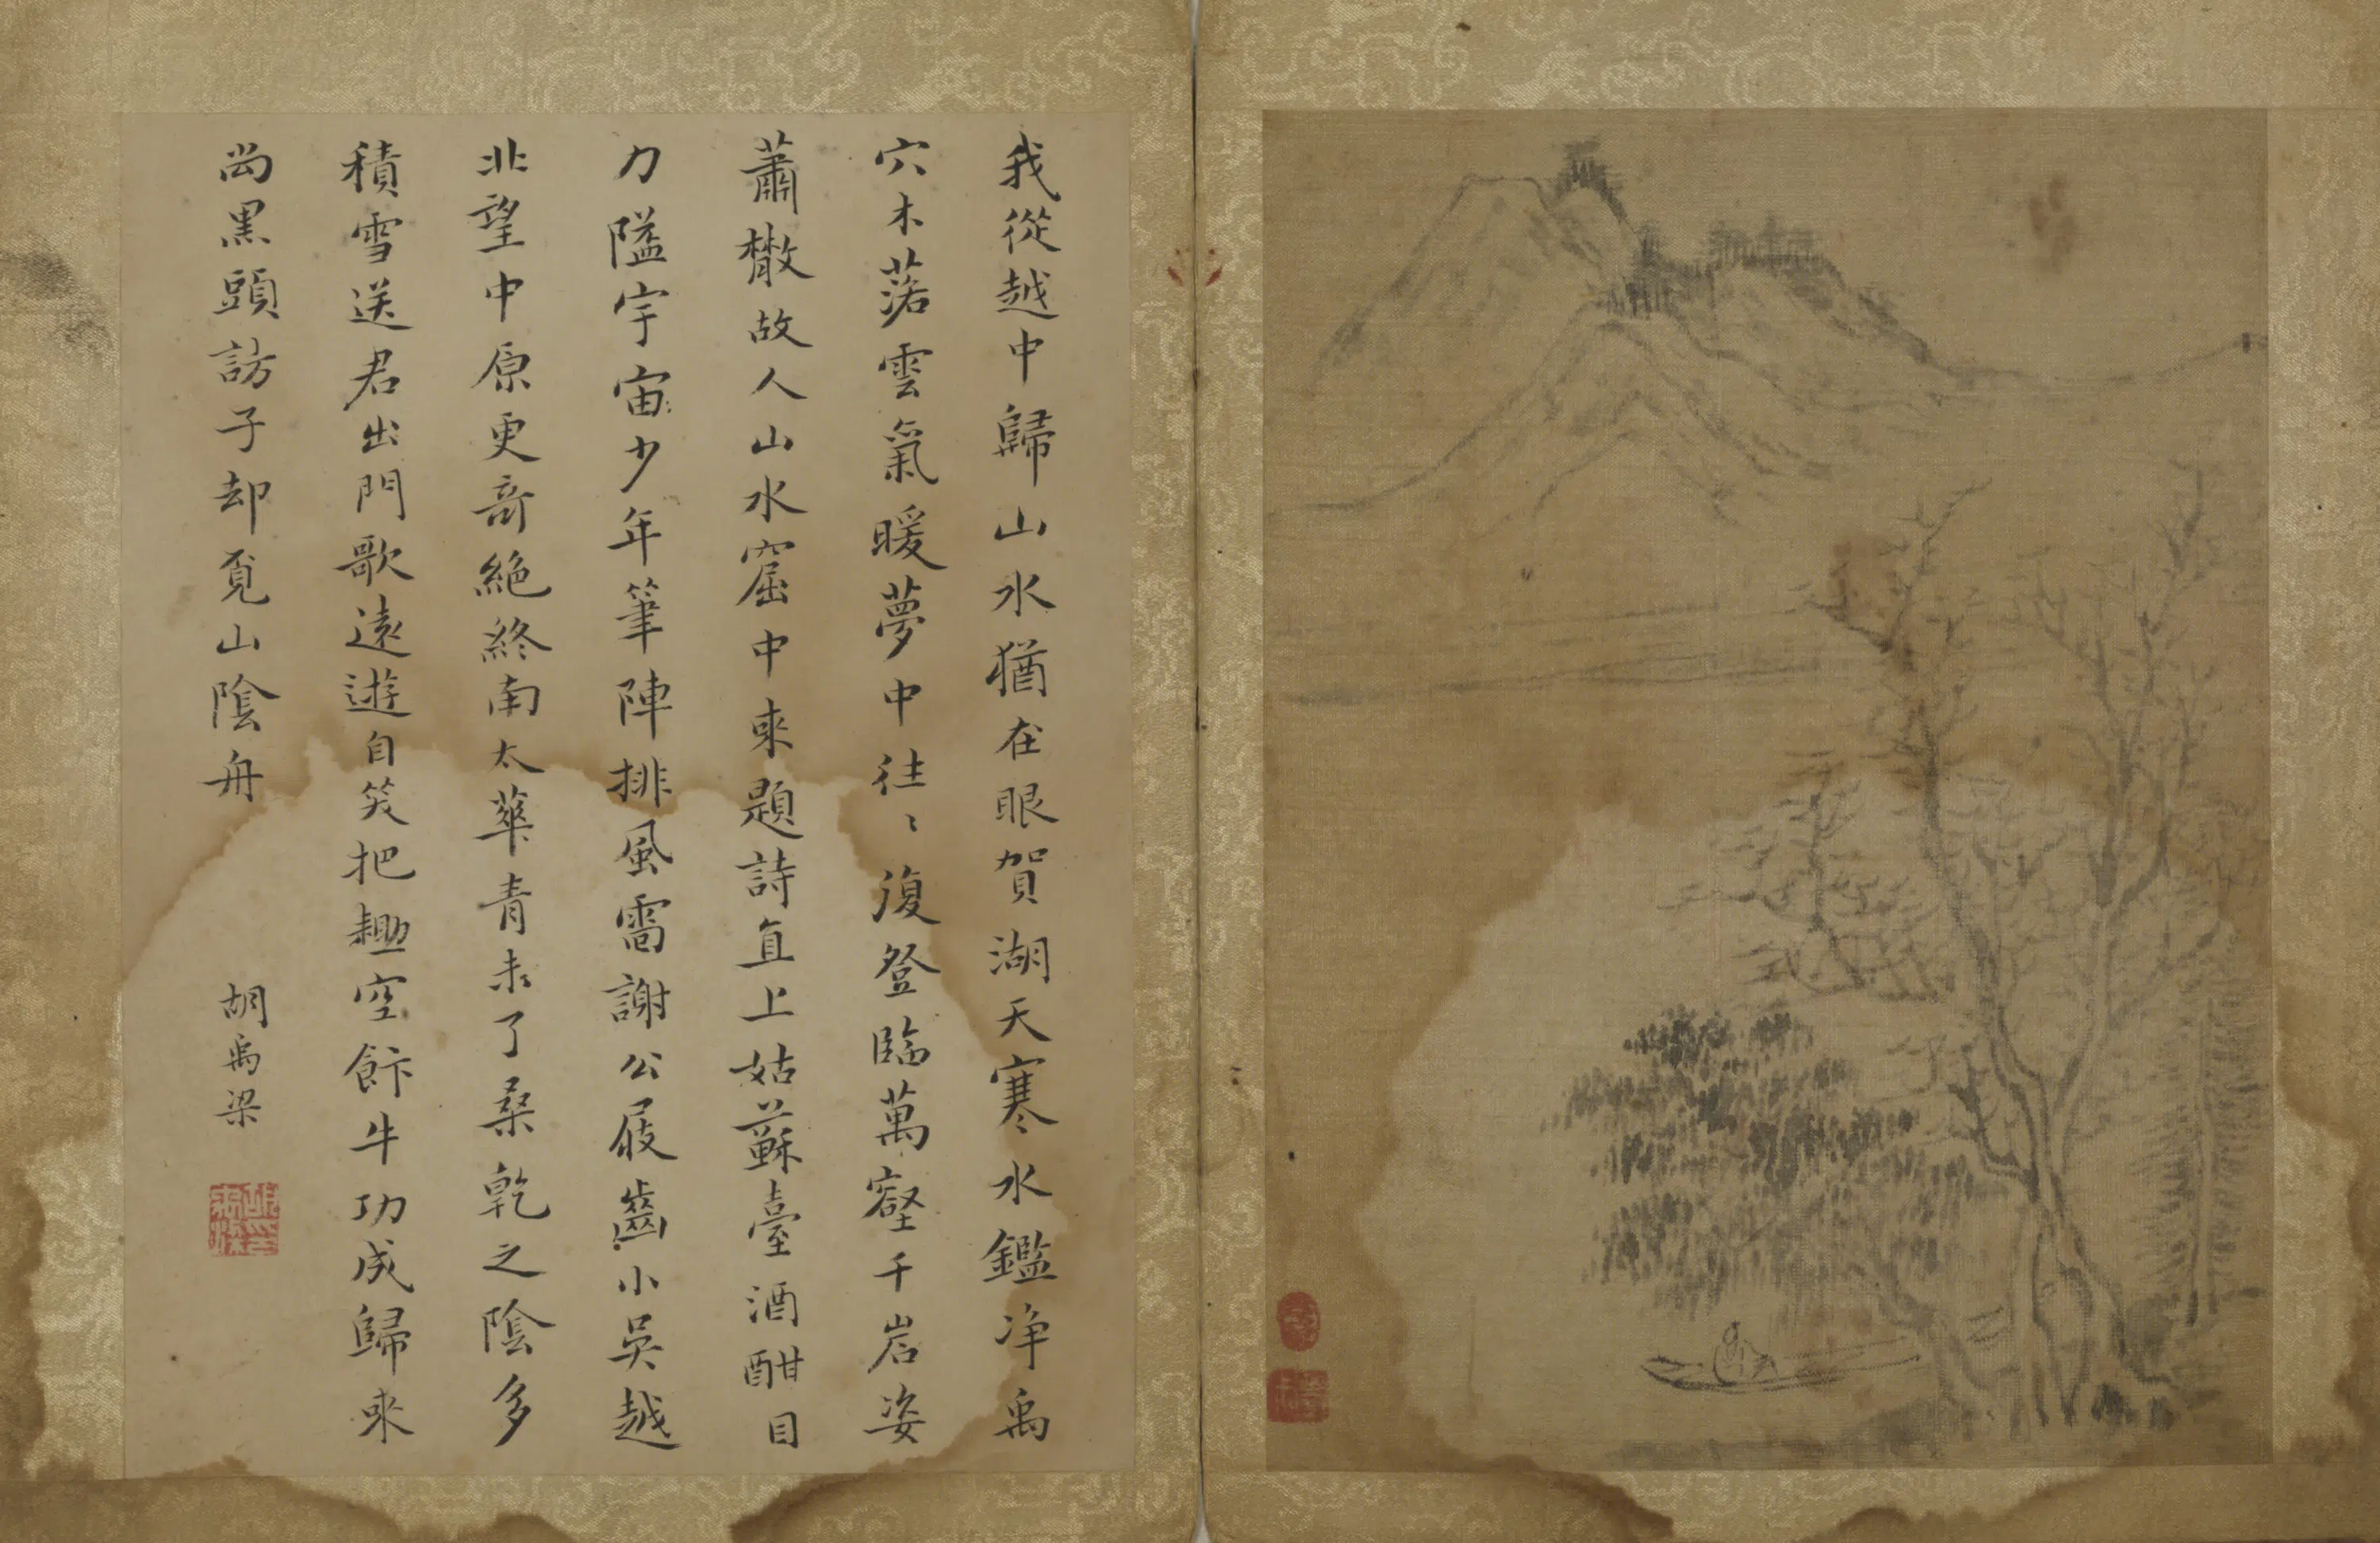 我從越中歸山水猶在眼賀湖天寒水鑑净禹
穴木落雲氣暖夢中往〻復登臨萬壑千岩姿
蕭散故人山水窟中來題詩直上姑蘇臺酒酣目
力隘宇宙少年筆陣排風雷謝公屐齒小吳越
北望中原更奇絶終南太華青未了桑乾之陰多
積雪送君出門歌遠遊自笑把耡空飰牛功成歸來
尚黑頭訪子却覓山陰舟
胡禹梁